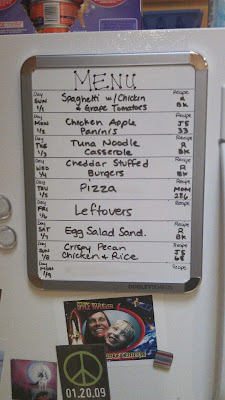 MENU
Day Recipe
SUN 1/1 Spaghetti w/ Chicken & Grape Tomatoes R BK
Day Recipe
MON 1/2 Chicken Apple Paninis J5 33
Day Recipe
TUE 1/3 Tuna Noodle Casserole R BK
Day Recipe
WED 1/4 Cheddar Stuffed Burgers R BK
Day Recipe
THU 1/5 Pizza MOM 286
Day Recipe
FRI 1/6 Leftovers
Day Recipe
SAT 1/7 Egg Salad Sand. R BK
Day Recipe
SUN 1/8 Crispy Pecan Chicken & Rice J5 68
Day Recipe
MON 1/9
01.20.09